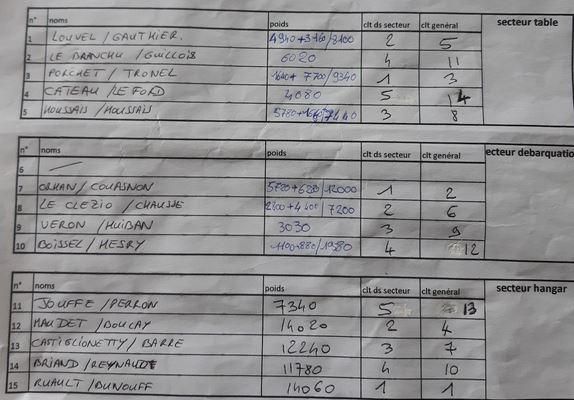 n° noms poids clt ds secteur clt général secteur table
1 LOUVEL / GAUTHIER. 4940+3160/8100 2 5
2 LE BRANCHU / GUILLOIS 6020 4 11
3 PORCHET / TRONEL 1640+ 7700/9340 1 3
4 CATEAU / LE FORD 4080 5 14
5 HOUSSAIS / HOUSSAIS 5780+1660/7440 3 8
n° noms poids clt ds secteur clt général ecteur debarquatio
6 —
7 ORHAN / COUASNON 1 2
8 LE CLEZIO / CHAUSSE 2800+4400/7200 2 6
9 VERON / HUIBAN 3030 3 9
10 BOISSEL / MESRY 1100+880/1980 4 12
n° noms poids clt ds secteur clt général secteur hangar
11 JOUFFE / PERRON 7340 5 13
12 MAUDET / DOUCAY 14020 2 4
13 CASTIGLIONETTY / BARRE 12240 3 7
14 BRIAND / REYNAUDT 11780 4 10
15 RUAULT / DUNOUFF 14060 1 1